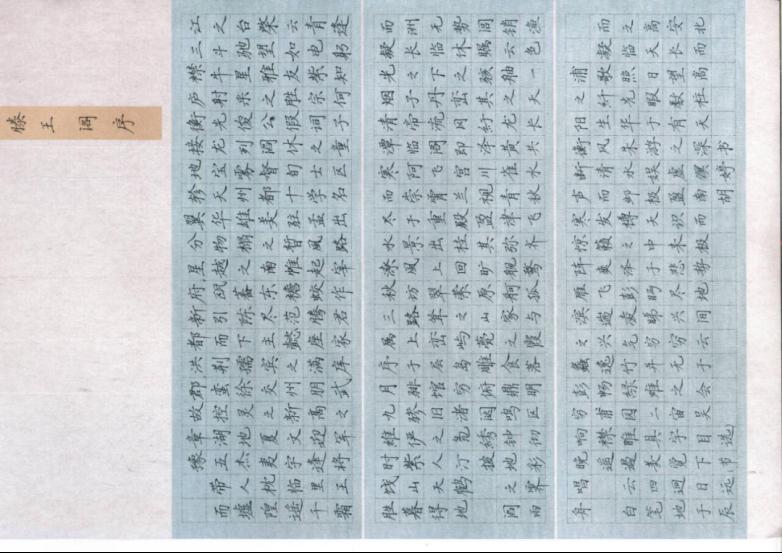 滕王阁序
豫章故郡洪都新府星分翼轸地接衡庐襟三江
而带五湖控蛮荆而引瓯越物华天宝龙光射牛斗之
墟人杰地灵徐孺下陈蕃之榻雄州雾列俊采星驰台
隍枕夷夏之交宾主尽东南之美都督阎公之雅望棨
遥临宇文新州之懿范襜帷暂驻十旬休假胜友如云
千里逢迎高朋满座腾蛟起凤孟学士之词宗紫电青
霜王将军之武库家君作宰路出名区童子何知躬逢
胜饯时维九月序属三秋潦水尽而寒潭清烟光凝而
暮山紫俨骖于上路访风景于崇阿临帝子之长洲
得天人之旧馆层峦耸翠上出重霄飞阁流丹下临无
地鹤汀凫渚穷岛屿之萦回桂殿兰宫即冈峦之休势
披绣闼俯雕甍山原旷其盈视川泽纡其骇瞩闾
阎之地钟鸣鼎食之家舸舰弥津青雀黄龙之舳云销
雨霁彩彻区明霞与孤鹜齐飞秋水共长天一色渔
舟唱晚响穷彭蠡之滨雁阵惊寒声断衡阳之浦
遥襟甫畅逸兴遄飞爽籁发而清风生纤歌凝而
白云遏睢园绿竹气凌彭泽之樽邺水朱华光照临之
笔四美具二难并穷睇眄于中天极娱游于暇日天高
地迥觉宇宙之无穷兴尽悲来识盈虚之有数望长安
于日下目吴会于云间地势极而南溟深天柱高而北
辰远 节选 胡婷书